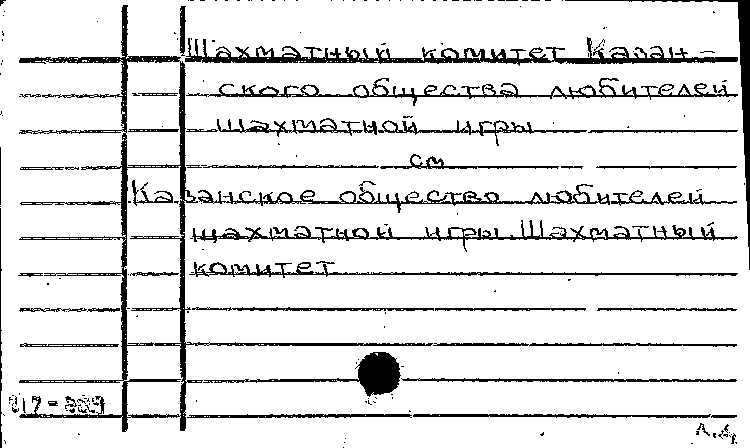 Шахматный комитет Казан-
ского общества любителей
шахматной игры
см
Казанское общество любителей
шахматной игры. Шахматный
комитет